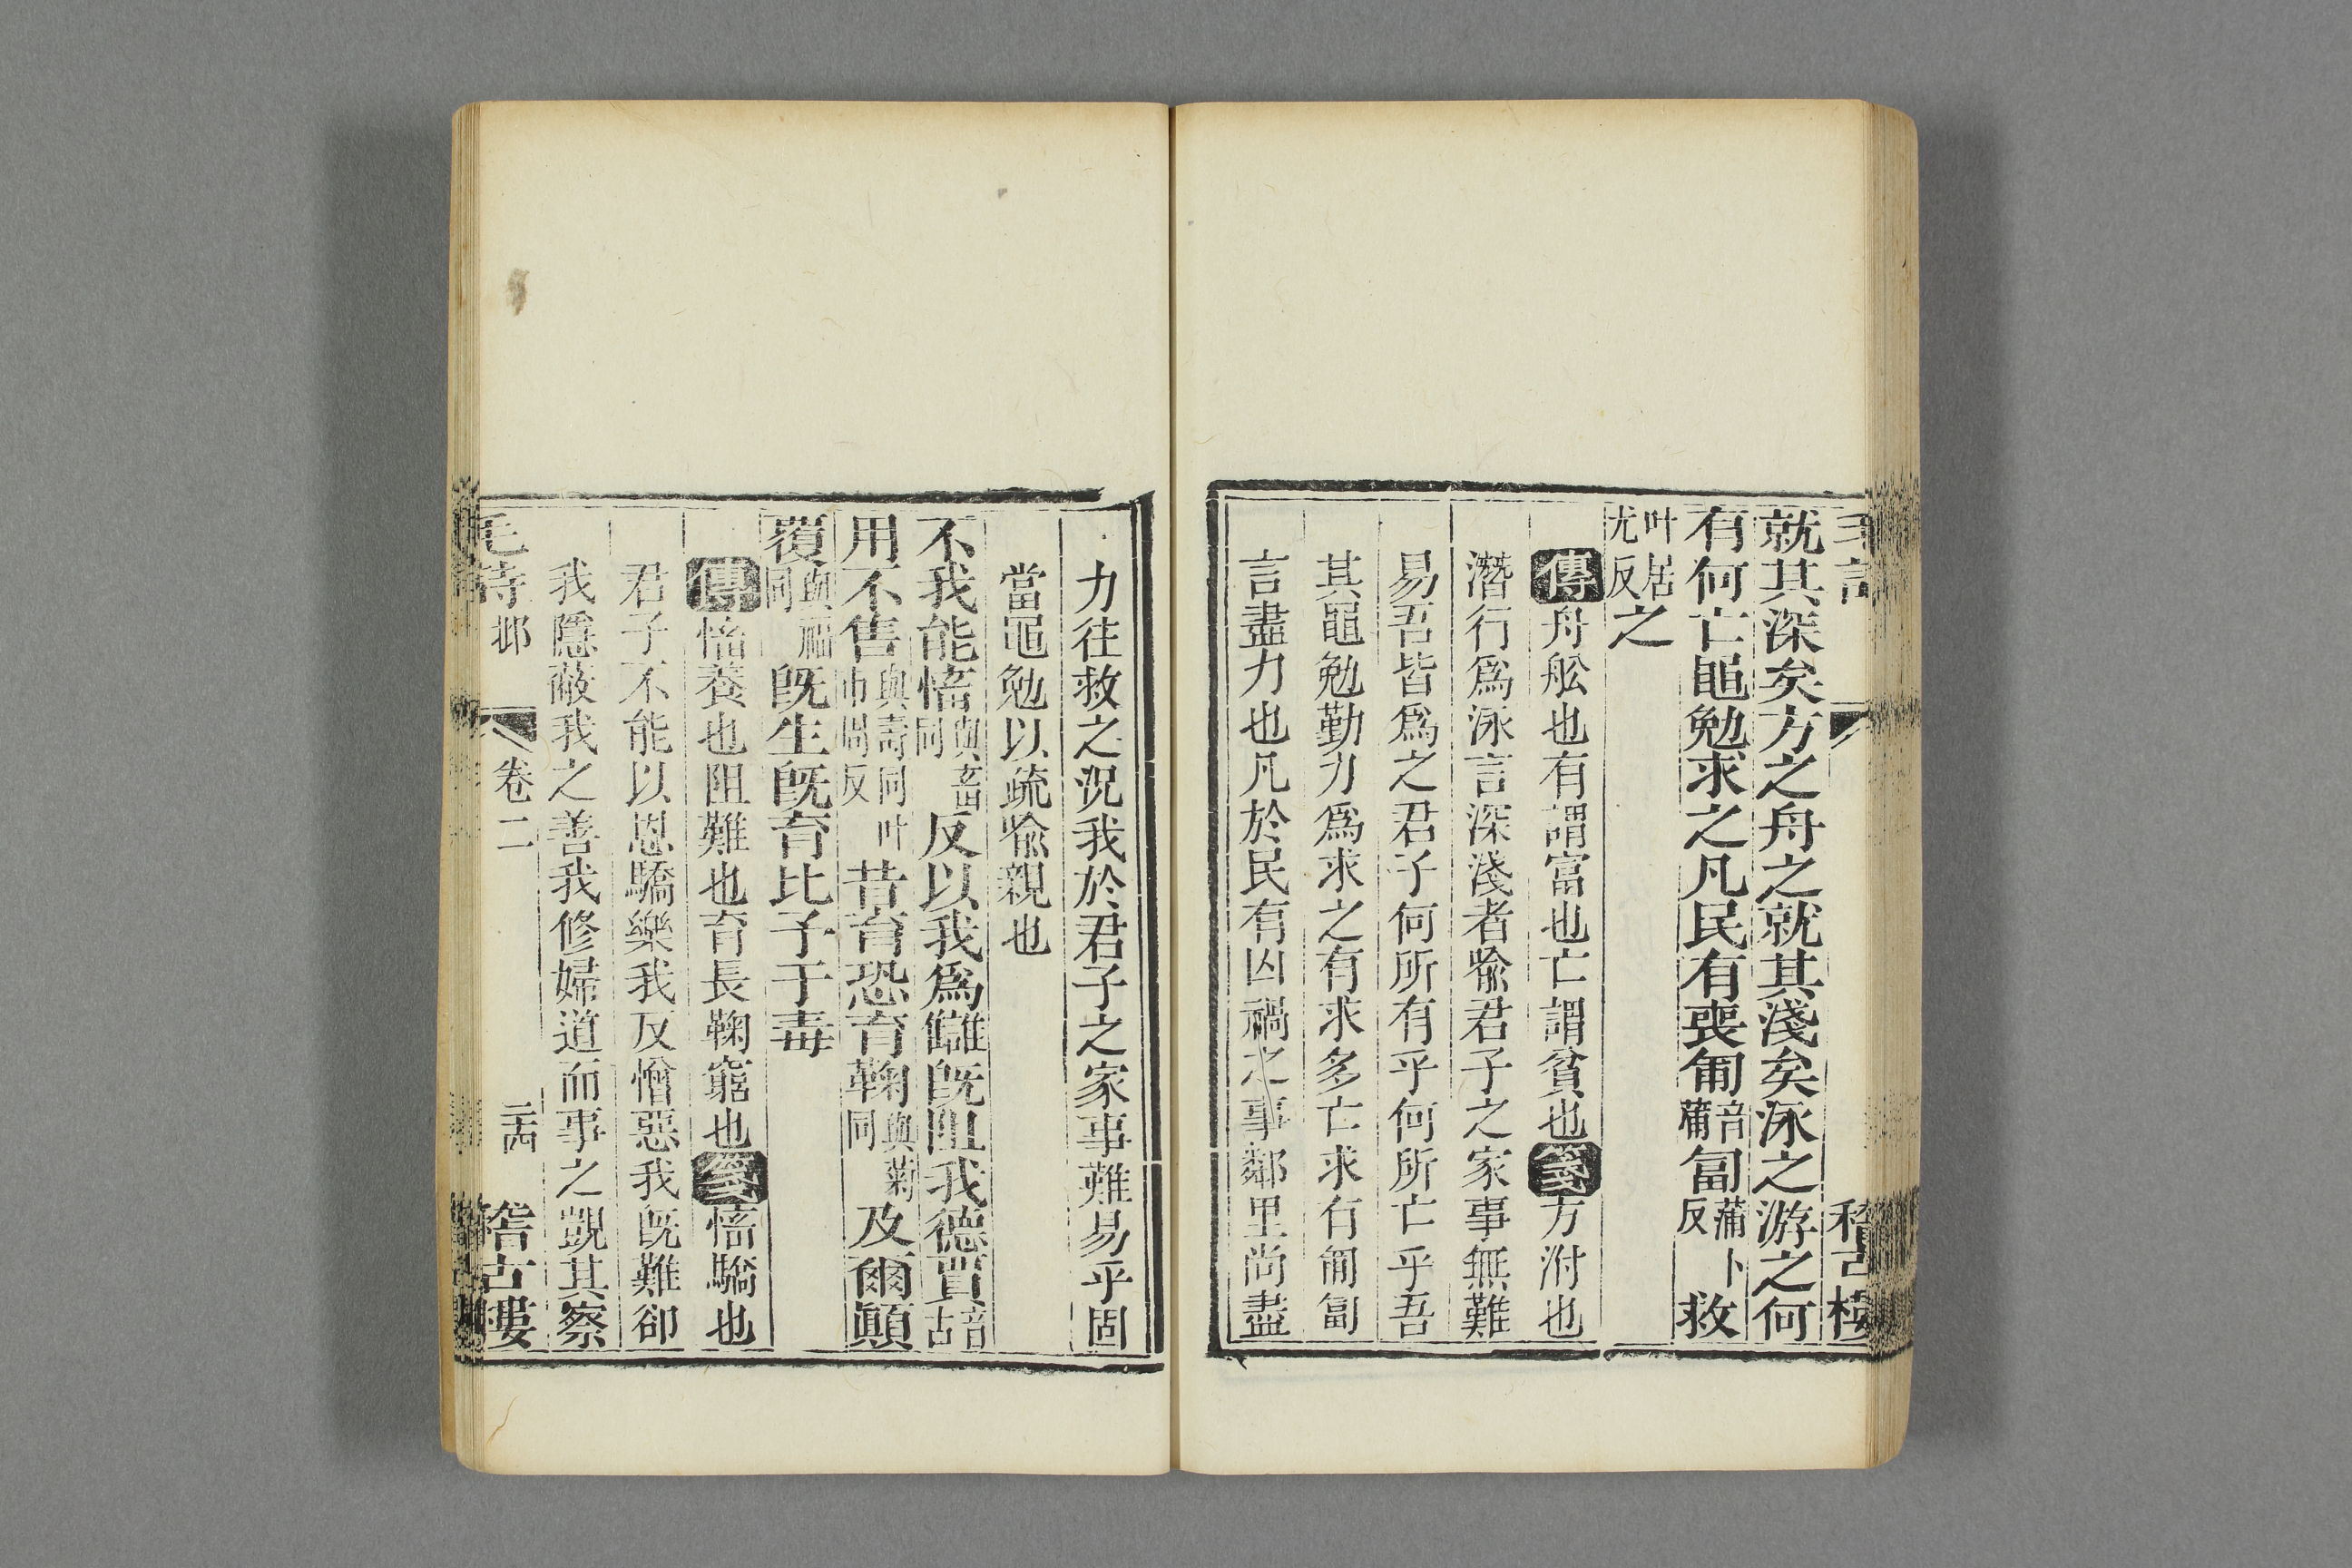 毛詩 稽古樓
就其深矣方之舟之就其淺矣泳之游之何
有何亡黽勉求之凡民有喪匍音蒲匐蒲卜反救
叶居尤反之
傳舟舩也有謂富也亡謂貧也箋方泭也
潛行爲泳言深淺者喻君子之家事無難
易吾皆爲之君子何所有乎何所亡乎吾
其黽勉勤力爲求之有求多亡求有匍匐
言盡力也凡於民有凶禍之事鄰里尚盡
力往救之況我於君子之家事難易乎固
當黽勉以疏喻親也
不我能慉與畜同反以我爲讎旣阻我德賈音古
用不售與壽同叶市周反昔育恐育鞠與菊同及爾顚
覆與福同旣生旣育比予于毒
傳慉養也阻難也育長鞠窮也箋慉驕也
君子不能以恩驕樂我反憎惡我旣難卻
我隱蔽我之善我修婦道而事之覬其察
毛詩 邶 卷二 二四 稽古樓